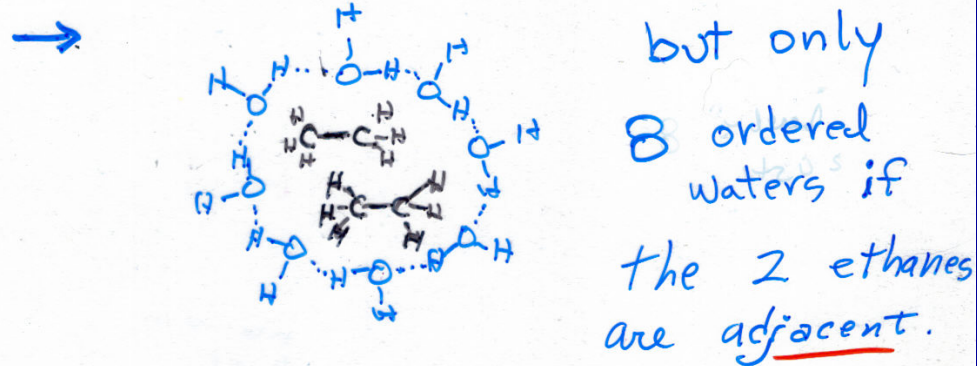 but only
8 ordered
waters if
the 2 ethanes
are adjacent.